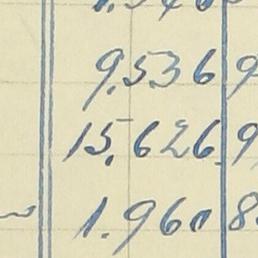 9.536 9
15.626 9
1.960 8